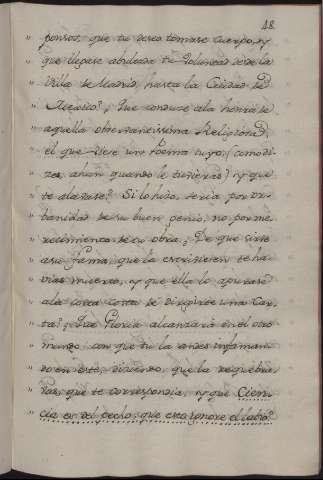 18
" ponsos, que tu deseo tomase cuerpo, y
" que llegase abileada tu Voluntad desde la
" Villa de Madrid, hasta la Ciudad de
" que conduce ala honra de
" aquella observantissima Religiosa,
" el que viese un Poema tuyo, (como di-
" zes, ahun quando le tuvieras) y que
" te alabase? Si lo hizo, seria por ur-
" banidad de su buen genio, no por me-
" recimiento de tu obra; De que sirve
" a su fama, que la escriviesen te ha-
" vias muerto, y que ella lo apurase
" ala corta costa de dirigirte una Car-
" ta? Que Gloria alcanzará en el otro
" mundo, con que tu la andes infaman-
" do en este, diziendo, que la requebra-
" vas, que te correspondia, y que Cien-
" cia es del pecho, que esta ignore el labio?